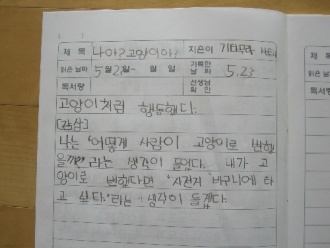 제 목 나야? 고양이야? 지은이 기타무라
읽은 날짜 5월 21일~ 월 일 기록한 날짜 5.23
독서량 선생님 확인
고양이처럼 행동했다.
[감상]
나는 '어떻게 사람이 고양이로 변했
을까?' 라는 생각이 들었다. 내가 고
양이로 변했다면 '자전거 바구니에 타
고 싶다.' 라는 생각이 들겠다.